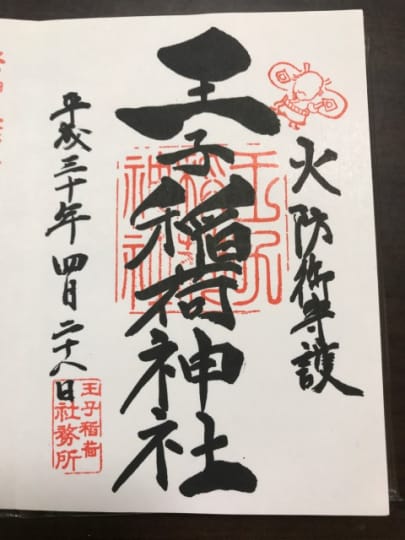 火防御守護
王子稲荷神社
王子
稲荷
神社
平成三十年四月二十八日
王子稲荷
社務所